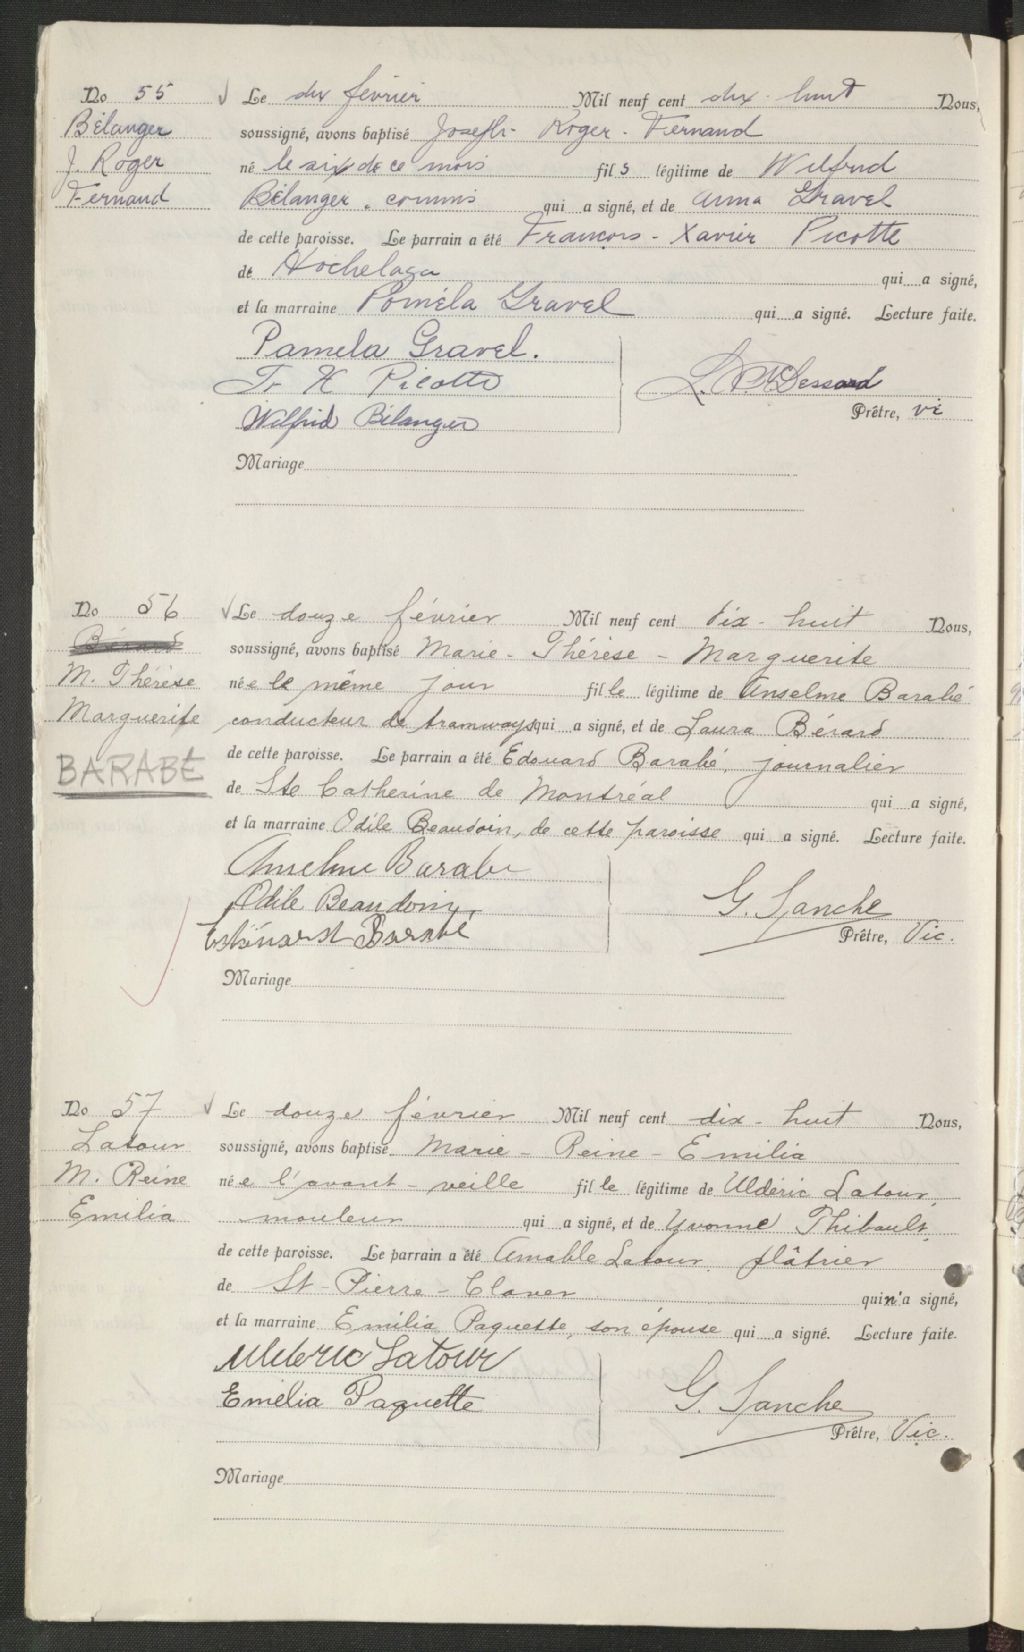 No 55
Bélanger
J. Roger
Fernand
Le dix février Mil neuf cent dix-huit Nous,
soussigné, avons baptisé Joseph-Roger-Fernand
né le six de ce mois fils légitime de Wilfrid
Bélanger, commis qui a signé, et de Anna Gravel
de cette paroisse. Le parrain a été François-Xavier Picotte
de Hochelaga qui a signé,
et la marraine Poméla Gravel qui a signé. Lecture faite.
Pamela Gravel.
Fr X Picotte
Wilfrid Bélanger
Prêtre, vic
Mariage
No 56
Bérard
M. Thérèse
Marguerite
BARABÉ
Le douze février Mil neuf cent dix-huit Nous,
soussigné, avons baptisé Marie-Thérèse-Marguerite
née le même jour fille légitime de Anselme Barabé
conducteur de tramways qui a signé, et de Laura Bérard
de cette paroisse. Le parrain a été Edouard Barabé, journalier
de Ste Catherine de Montréal qui a signé,
et la marraine Odile Beaudoin, de cette paroisse qui a signé. Lecture faite.
Anselme Barabé
Odile Beaudoin
Barabé
G. Lanche
Prêtre, Vic.
Mariage
No 57
Latour
M. Reine
Emilia
Le douze février Mil neuf cent dix-huit Nous,
soussigné, avons baptisé Marie-Reine-Emilia
née l'avant-veille fille légitime de Uldéric Latour,
mouleur qui a signé, et de Yvonne Thibault,
de cette paroisse. Le parrain a été Amable Latour, plâtrier
de St-Pierre-Claver qui n'a signé,
et la marraine Emilia Paquette, son épouse qui a signé. Lecture faite.
Ulderic Latour
Emélia Paquette
G. Lanche
Prêtre, Vic.
Mariage